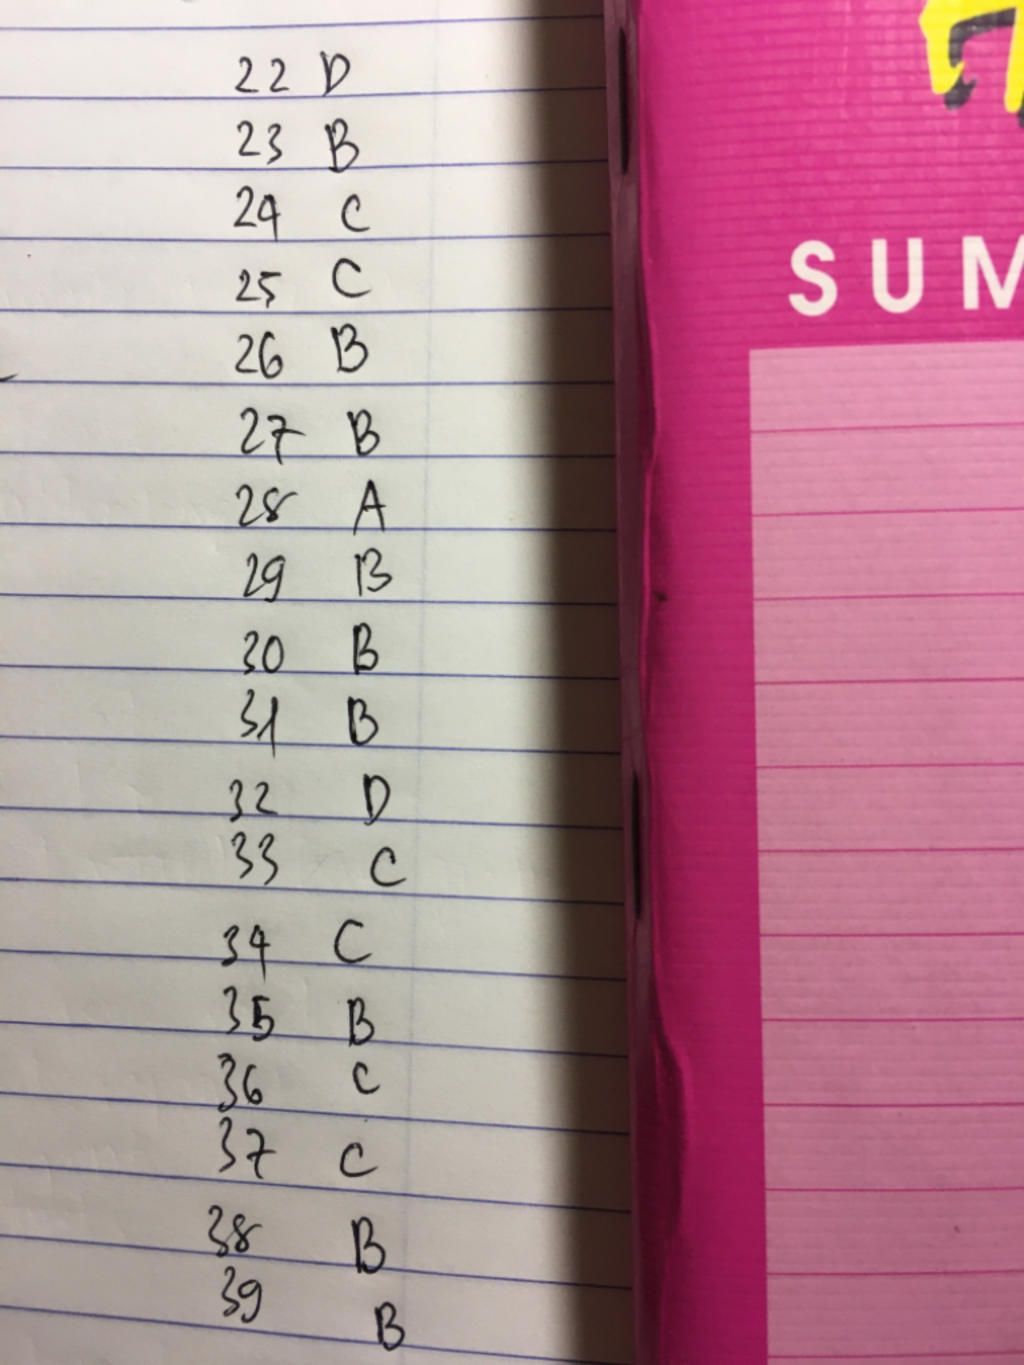 22 D
23 B
24 C
25 C
26 B
27 B
28 A
29 B
30 B
31 B
32 D
33 C
34 C
35 B
36 C
37 C
38 B
39 B
SUM